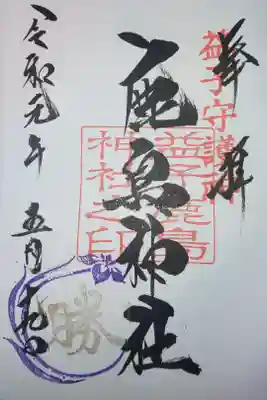 奉拝
益子守護所
鹿島神社
益子鹿島
神社之印
令和元年 五月
勝